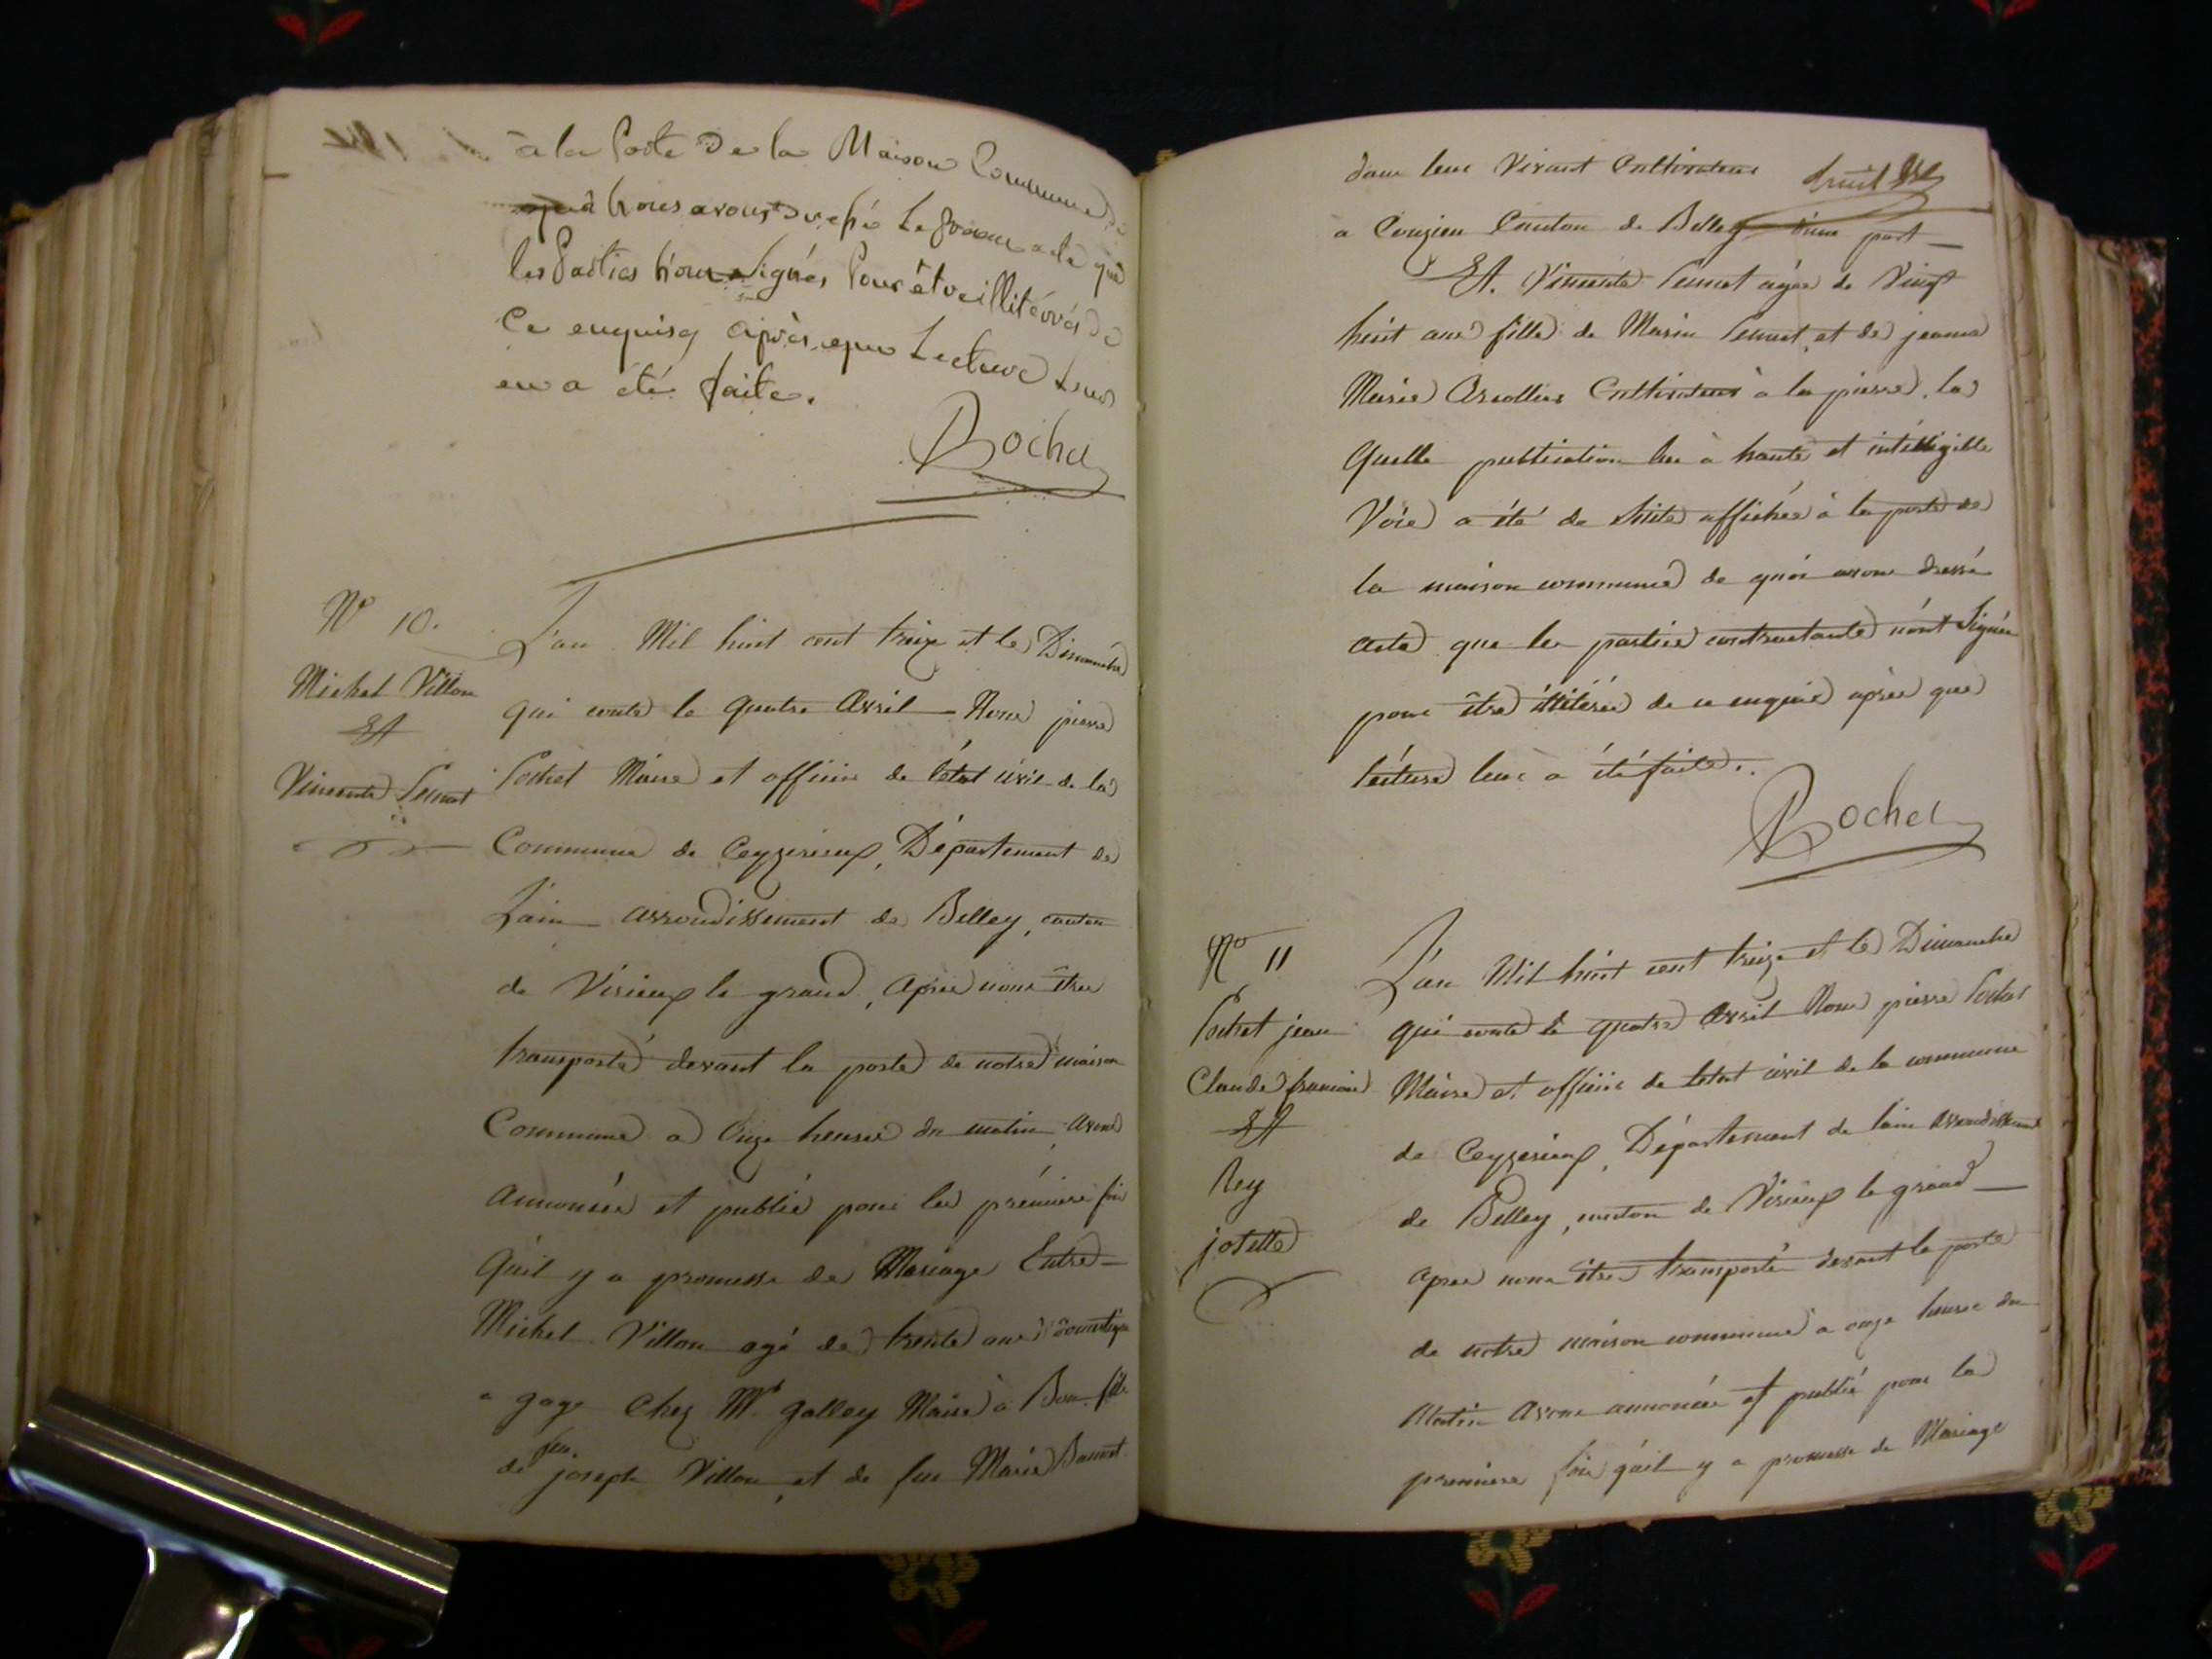 à la Porte De la Maison Commune De
quoi Nous avons Dressé Le Present acte que
les Parties N'ont Signés Pour être illitérrés De
Ce enquis, après que Lecture Leur
en a été faite.
Pochet
Nº 10.
Michel Villon
Et
Vincente
L'an Mil huit cent treize et le Dimanche
qui conte le quatre Avril Nous pierre
Pochet Maire et officier de l'état civil de la
Commune de Ceyzerieux, Département de
L'ain arrondissement de Belley, canton
de Virieux le grand, Apres nous être
transporté devant la porte de notre maison
Commune a Onze heures du matin, Avons
Annoncée et publié pour la prémiere fois
Qu'il y a promesse de Mariage Entre
Michel Villon agé de trente ans domestique
a gage Chez Mr. galley Maire à fils
de feu joseph Villon, et de feu Marie
dans leur Vivant Cultivateurs
à Conzieu Canton de Belley d'une part
Et Vincente agée de Vingt
huit ans fille de Marin et de jeanne
Marie Cultivateurs à la pierre, la
Quelle publication lue à haute et intelligible
Voie a été de Suite affichée à la porte de
la maison commune de quoi avons dressé
acte que les parties contractante n'ont Signée
pour être illitérée de ce enquis après que
lecture leur à été faite.
Pochet
Nº 11
Pochet jean
Claude francois
Et
Rey
josette
L'an Mil huit cent treize et le Dimanche
qui conte le quatre Avril Nous pierre Pochet
Maire et officier de letat civil de la commune
de Ceyzerieux, Département de lain arrondissement
de Belley, canton de Virieux le grand
Apres nous être transporté devant la porte
de notre maison commune a onze heures du
Matin Avons annoncée et publié pour la
premiere fois qu'il y a promesse de Mariage